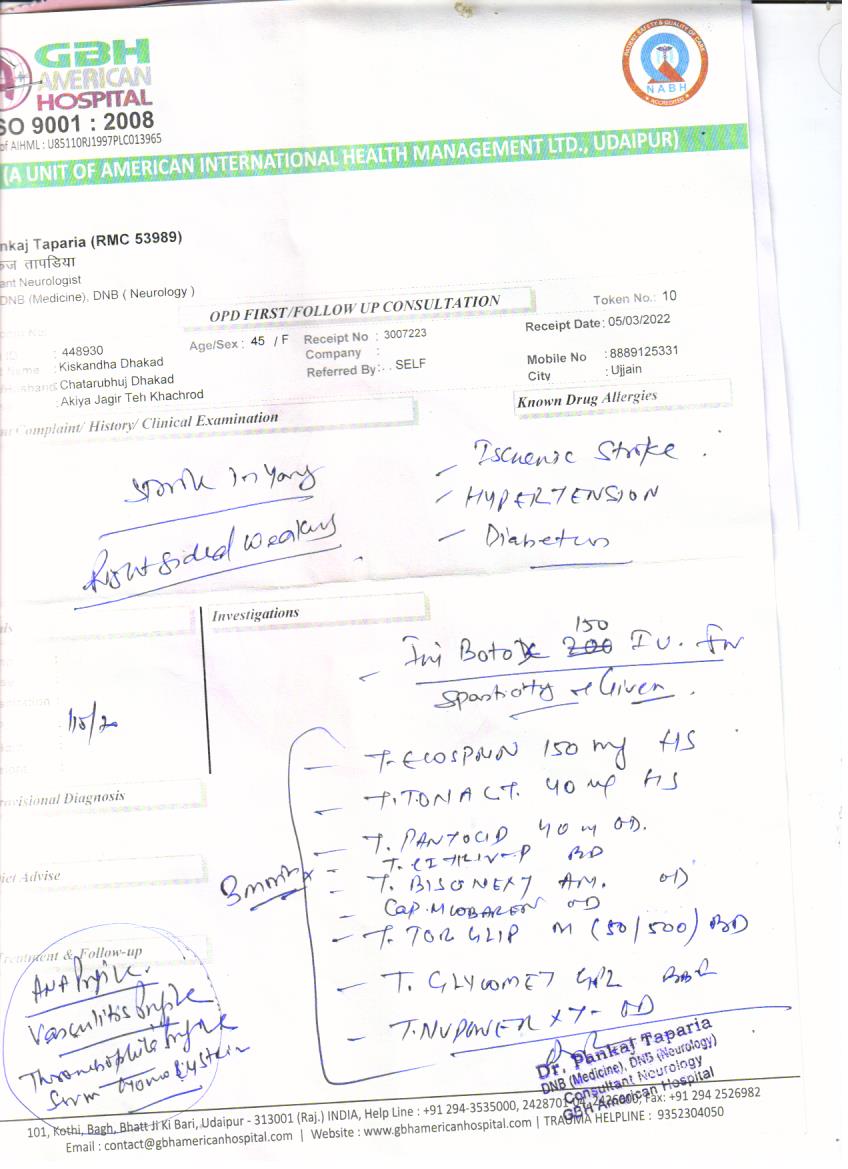 GBH
AMERICAN
HOSPITAL
ISO 9001 : 2008
of AIHML : U85110RJ1997PLC013965
PATIENT SAFETY & QUALITY OF CARE
NABH
ACCREDITED
(A UNIT OF AMERICAN INTERNATIONAL HEALTH MANAGEMENT LTD., UDAIPUR)
nkaj Taparia (RMC 53989)
कज तापडिया
ant Neurologist
DNB (Medicine), DNB ( Neurology )
OPD FIRST/FOLLOW UP CONSULTATION
Token No.: 10
: 448930
Age/Sex : 45 / F
Receipt No : 3007223
Receipt Date: 05/03/2022
Name : Kiskandha Dhakad
Company :
Mobile No : 8889125331
: Chatarubhuj Dhakad
Referred By : . SELF
City : Ujjain
: Akiya Jagir Teh Khachrod
Complaint/ History/ Clinical Examination
Known Drug Allergies
Stroke In Young
Right sided weakness
- Ischemic Stroke
- HYPERTENSION
- Diabetes
Investigations
- Inj Botox 150 I.U. for
Spasticity Given.
110/
ovisional Diagnosis
iet Advise
Treatment & Follow-up
3 months
- T. ECOSPRIN 150 mg HS
- T. TONACT. 40 mg HS
- T. PANTOCID 40 m OD.
- T. CITILIV-P BD
- T. BISONEXT AM. OD
- Cap. MYOBAREN OD
- T. TORGLIP M (50/500) BD
- T. GLYCOMET GP2
- T. NUPOWER XT - OD
ANA Profile.
Vasculitis Profile
Thrombophilia Profile
Serum Homocystein
Dr. Pankaj Taparia
DNB (Medicine), DNB (Neurology)
Consultant Neurology
GBH American Hospital
101, Kothi, Bagh, Bhatt Ji Ki Bari, Udaipur - 313001 (Raj.) INDIA, Help Line : +91 294-3535000, 2428701-04, 2426000, Fax: +91 294 2526982
Email : contact@gbhamericanhospital.com | Website : www.gbhamericanhospital.com | TRAUMA HELPLINE : 9352304050